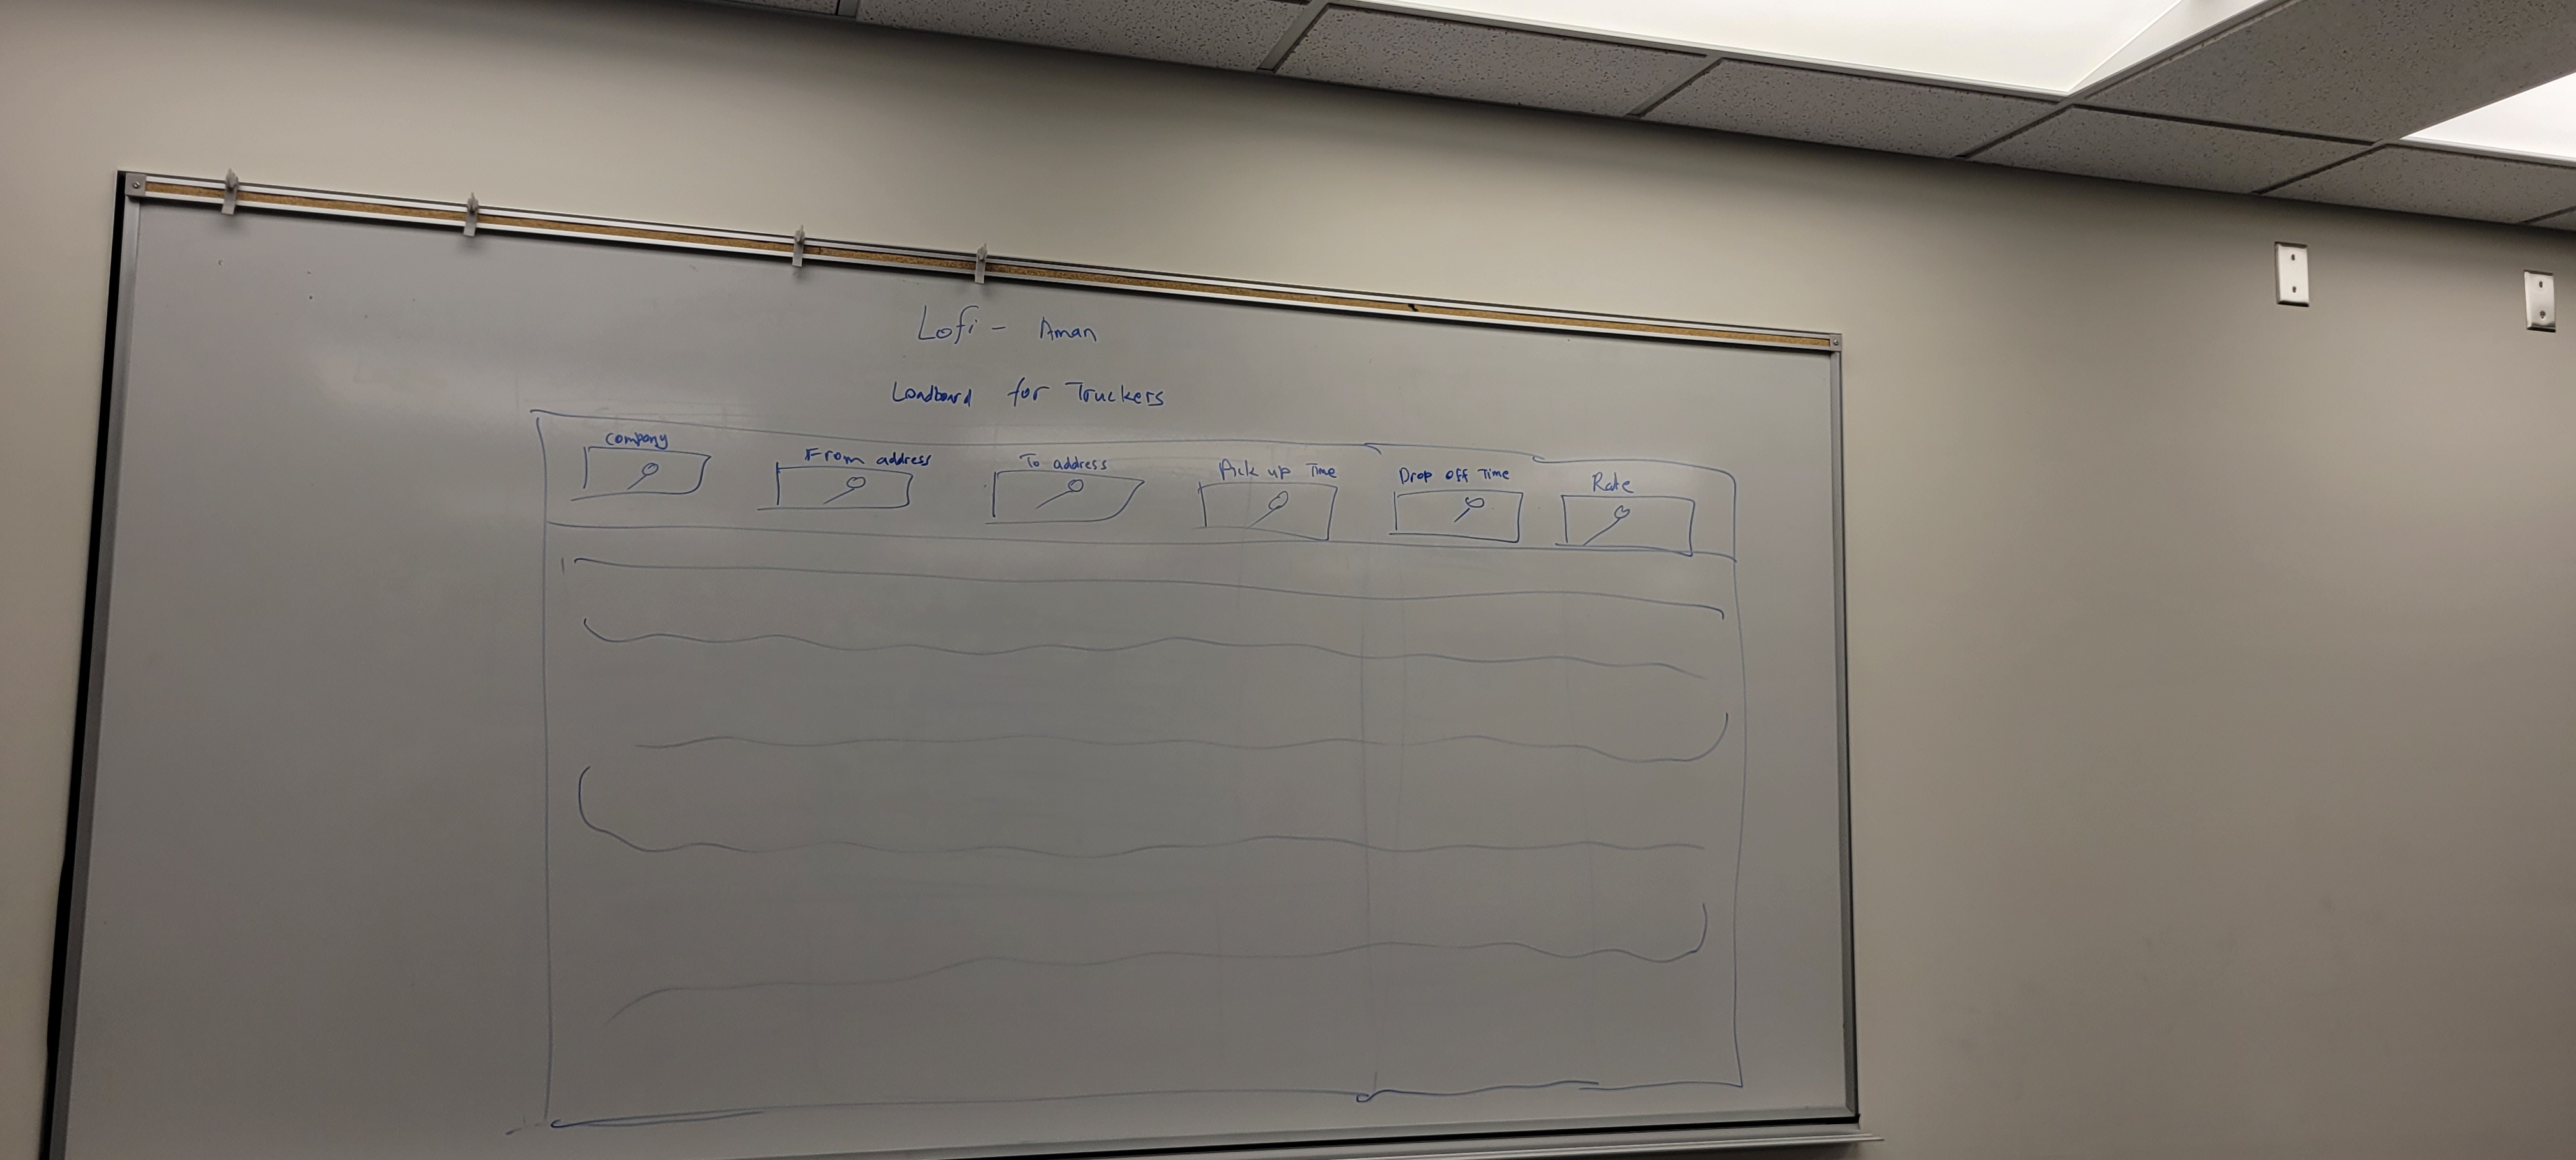 Lofi - Aman
Loadboard for Truckers
Company
From address
To address
Pick up Time
Drop off Time
Rate